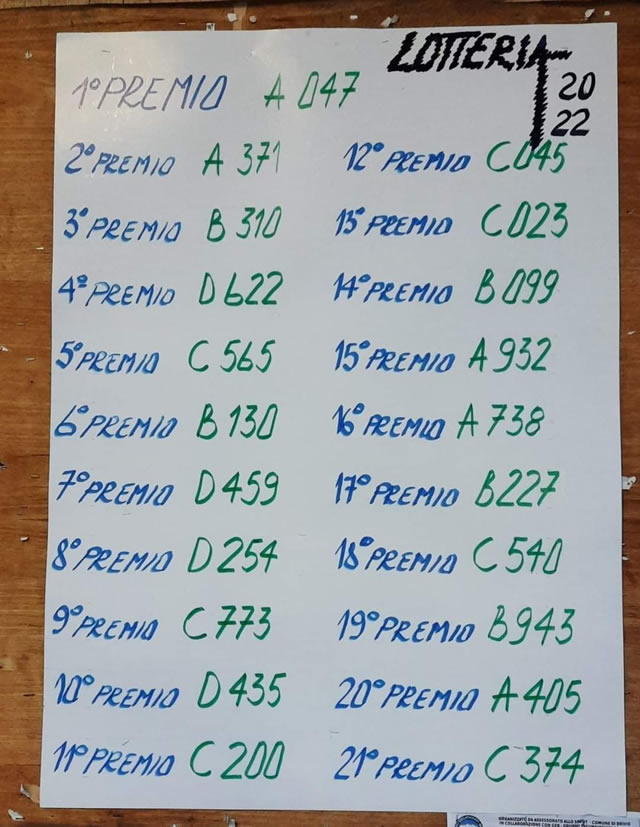 LOTTERIA
20
22
1º PREMIO A 047
2º PREMIO A 371
3º PREMIO B 310
4º PREMIO D 622
5º PREMIO C 565
6º PREMIO B 130
7º PREMIO D 459
8º PREMIO D 254
9º PREMIO C 773
10º PREMIO D 435
11º PREMIO C 200
12º PREMIO C 045
13º PREMIO C 023
14º PREMIO B 099
15º PREMIO A 932
16º PREMIO A 738
17º PREMIO B 227
18º PREMIO C 540
19º PREMIO B 943
20º PREMIO A 405
21º PREMIO C 374
ORGANIZZATO DA ASSESSORATO ALLO SPORT - COMUNE DI BRIVIO
IN COLLABORAZIONE CON